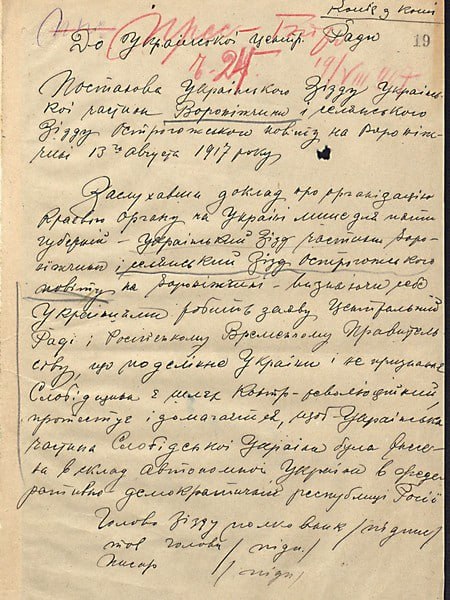 Копія з копії
19
До Української Центр. Ради
Ч. 24
Постанова Українського Зїзду Україн-
ської частини Воронїжчини і селянського
Зїзду Острогожського повіту на Вороніж-
чині 13го августа 1917 року
Заслухавши доклад про організацію
Краєвого Органу на Україні лише для пяти
губерній – Український Зїзд частини Воро-
ніжчини і селянський Зїзд Острогожського
повіту на Воронїжчині – визнаючи себе
Українцями робить заяву Центральній
Раді і Російському Временному Правитель-
ству, що поділення України і не признання
Слобідщини є шлях контр-революційний,
протестує і домагається, щоб Українська
частина Слобідської України була внесе-
на в склад Автономної України в феде-
ративно демократичній республиці Росії
Голова Зїзду полковник /підпис/
тов голови /підп./
писар /підп/